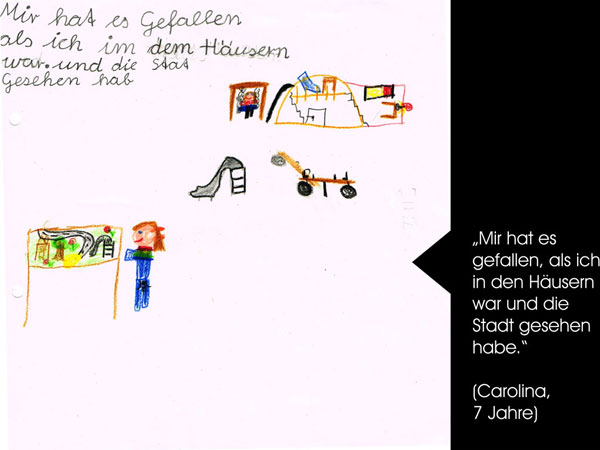 Mir hat es Gefallen
als ich im dem Häusern
war. und die Stat
Gesehen hab
„Mir hat es
gefallen, als ich
in den Häusern
war und die
Stadt gesehen
habe.“
(Carolina,
7 Jahre)